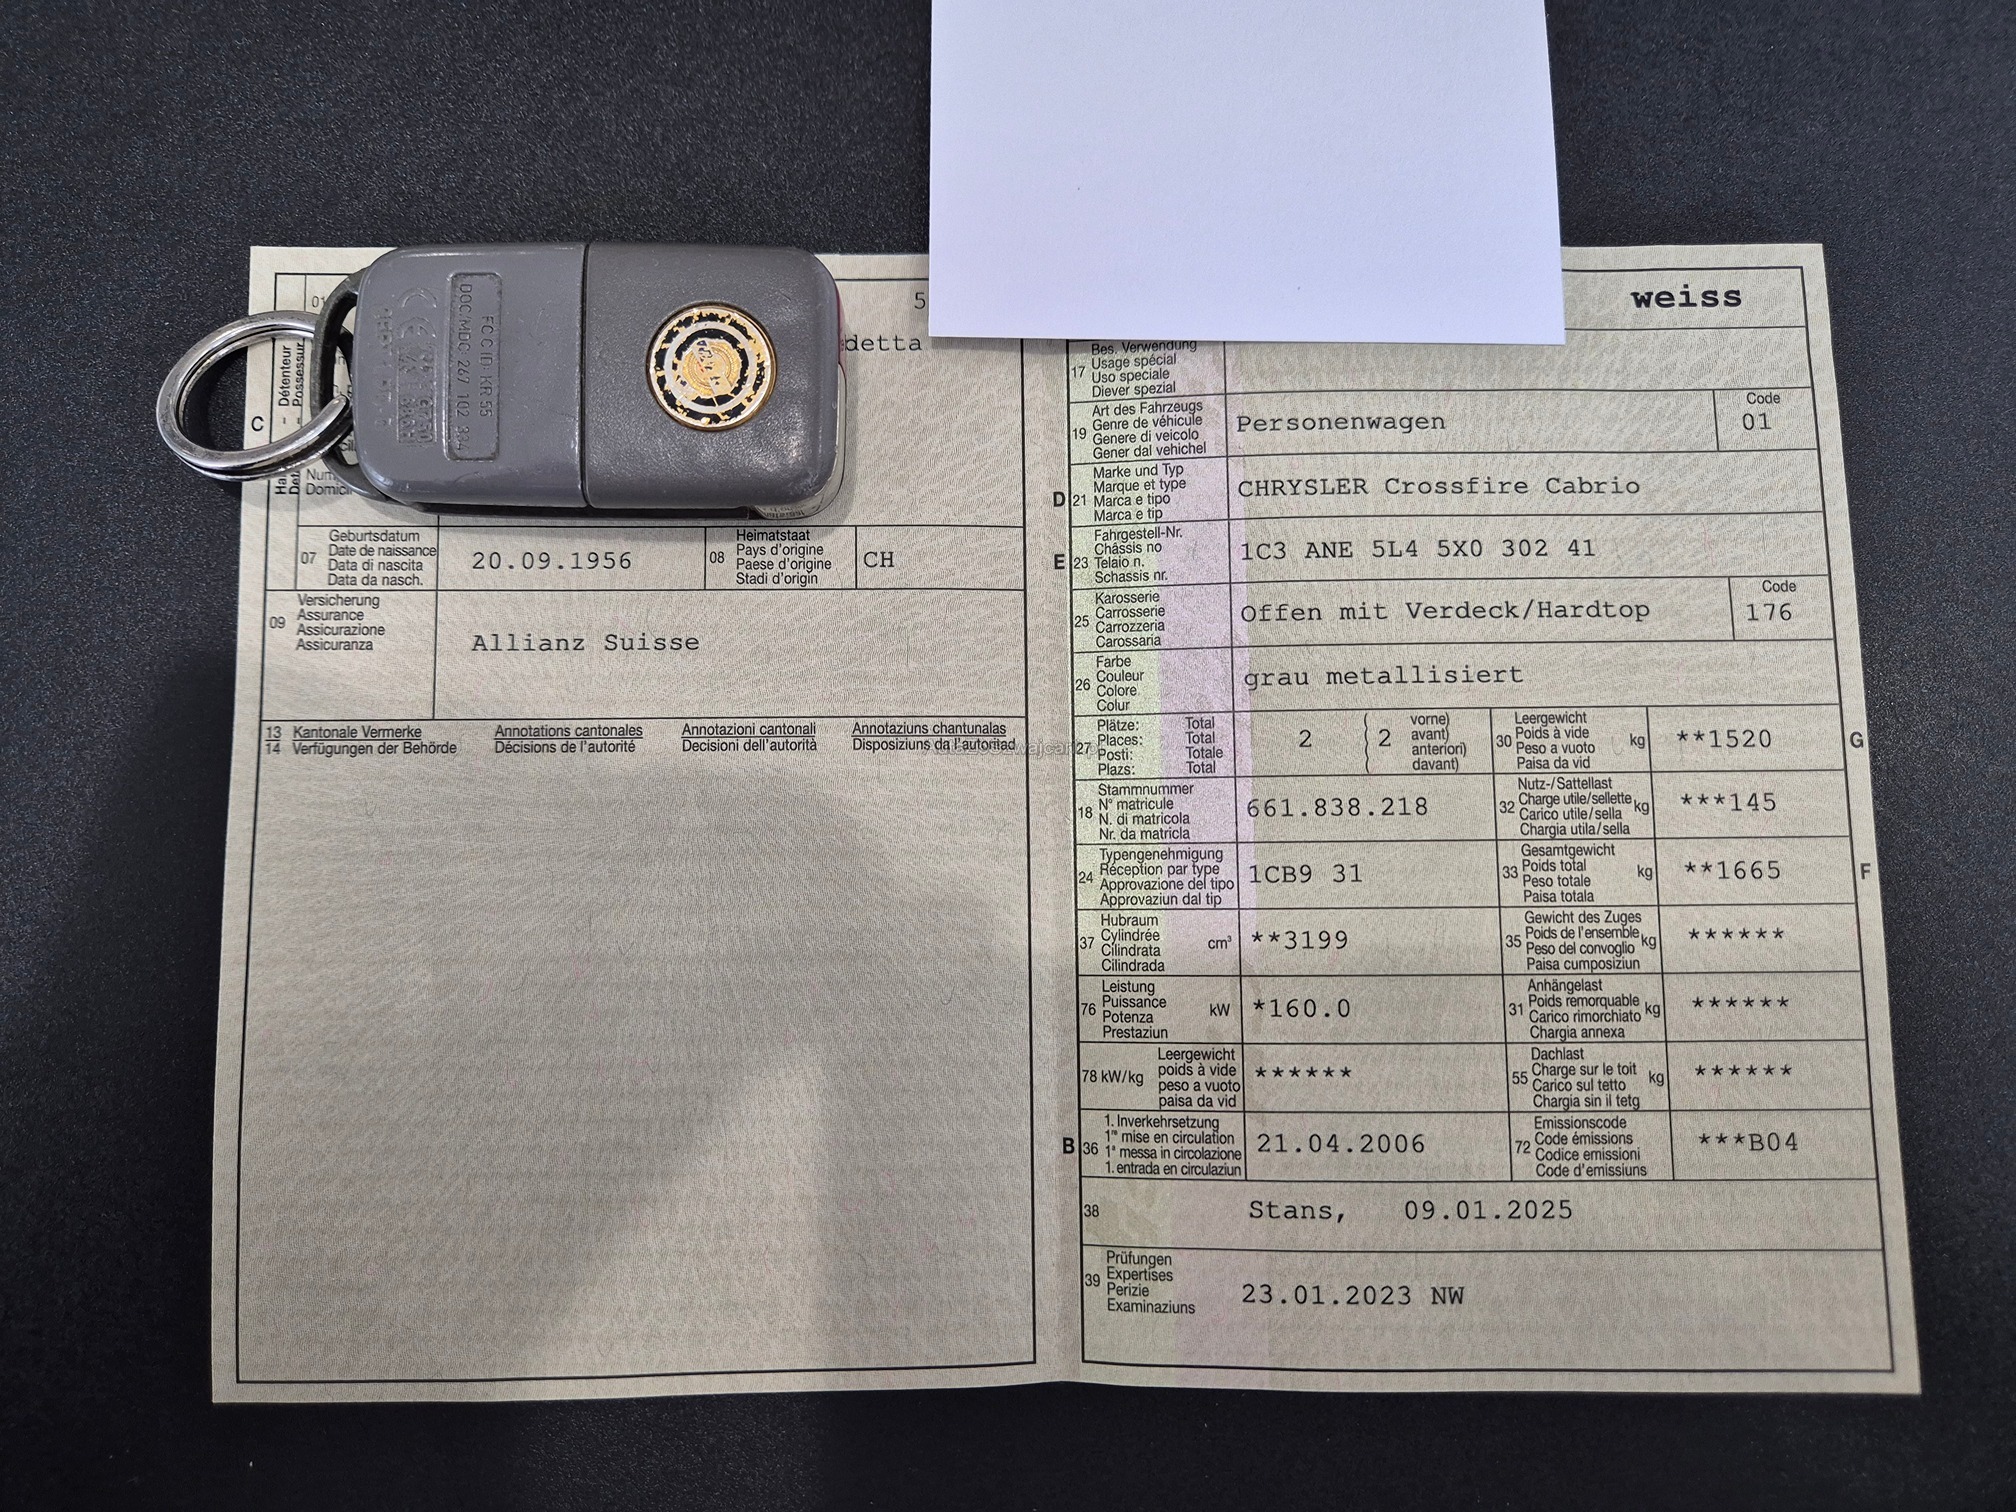 5
detta
01
C
Détenteur
Possessur
Num
Domici
07 Geburtsdatum
Date de naissance
Data di nascita
Data da nasch.
20.09.1956
08 Heimatstaat
Pays d'origine
Paese d'origine
Stadi d'origin
CH
09 Versicherung
Assurance
Assicurazione
Assicuranza
Allianz Suisse
13 Kantonale Vermerke Annotations cantonales Annotazioni cantonali Annotaziuns chantunalas
14 Verfügungen der Behörde Décisions de l'autorité Decisioni dell'autorità Disposiziuns da l'autoritad
FCC ID: KR55
DOC/MDC 267 102 334
CE
weiss
17 Bes. Verwendung
Usage spécial
Uso speciale
Diever spezial
19 Art des Fahrzeugs
Genre de véhicule
Genere di veicolo
Gener dal vehichel
Personenwagen
Code
01
D 21 Marke und Typ
Marque et type
Marca e tipo
Marca e tip
CHRYSLER Crossfire Cabrio
E 23 Fahrgestell-Nr.
Châssis no
Telaio n.
Schassis nr.
1C3 ANE 5L4 5X0 302 41
25 Karosserie
Carrosserie
Carrozzeria
Carossaria
Offen mit Verdeck/Hardtop
Code
176
26 Farbe
Couleur
Colore
Colur
grau metallisiert
27 Plätze: Total
Places: Total
Posti: Totale
Plazs: Total
2 2 vorne)
avant)
anteriori)
davant)
30 Leergewicht
Poids à vide
Peso a vuoto
Paisa da vid
kg **1520 G
18 Stammnummer
N° matricule
N. di matricola
Nr. da matricla
661.838.218
32 Nutz-/Sattellast
Charge utile/sellette
Carico utile/sella
Chargia utila/sella
kg ***145
24 Typengenehmigung
Réception par type
Approvazione del tipo
Approvaziun dal tip
1CB9 31
33 Gesamtgewicht
Poids total
Peso totale
Paisa totala
kg **1665 F
37 Hubraum
Cylindrée
Cilindrata
Cilindrada
cm³ **3199
35 Gewicht des Zuges
Poids de l'ensemble
Peso del convoglio
Paisa cumposiziun
kg ******
76 Leistung
Puissance
Potenza
Prestaziun
kW *160.0
31 Anhängelast
Poids remorquable
Carico rimorchiato
Chargia annexa
kg ******
78 kW/kg Leergewicht
poids à vide
peso a vuoto
paisa da vid
******
55 Dachlast
Charge sur le toit
Carico sul tetto
Chargia sin il tetg
kg ******
B 36 1. Inverkehrsetzung
1re mise en circulation
1a messa in circolazione
1. entrada en circulaziun
21.04.2006
72 Emissionscode
Code émissions
Codice emissioni
Code d'emissiuns
***B04
38 Stans, 09.01.2025
39 Prüfungen
Expertises
Perizie
Examinaziuns
23.01.2023 NW